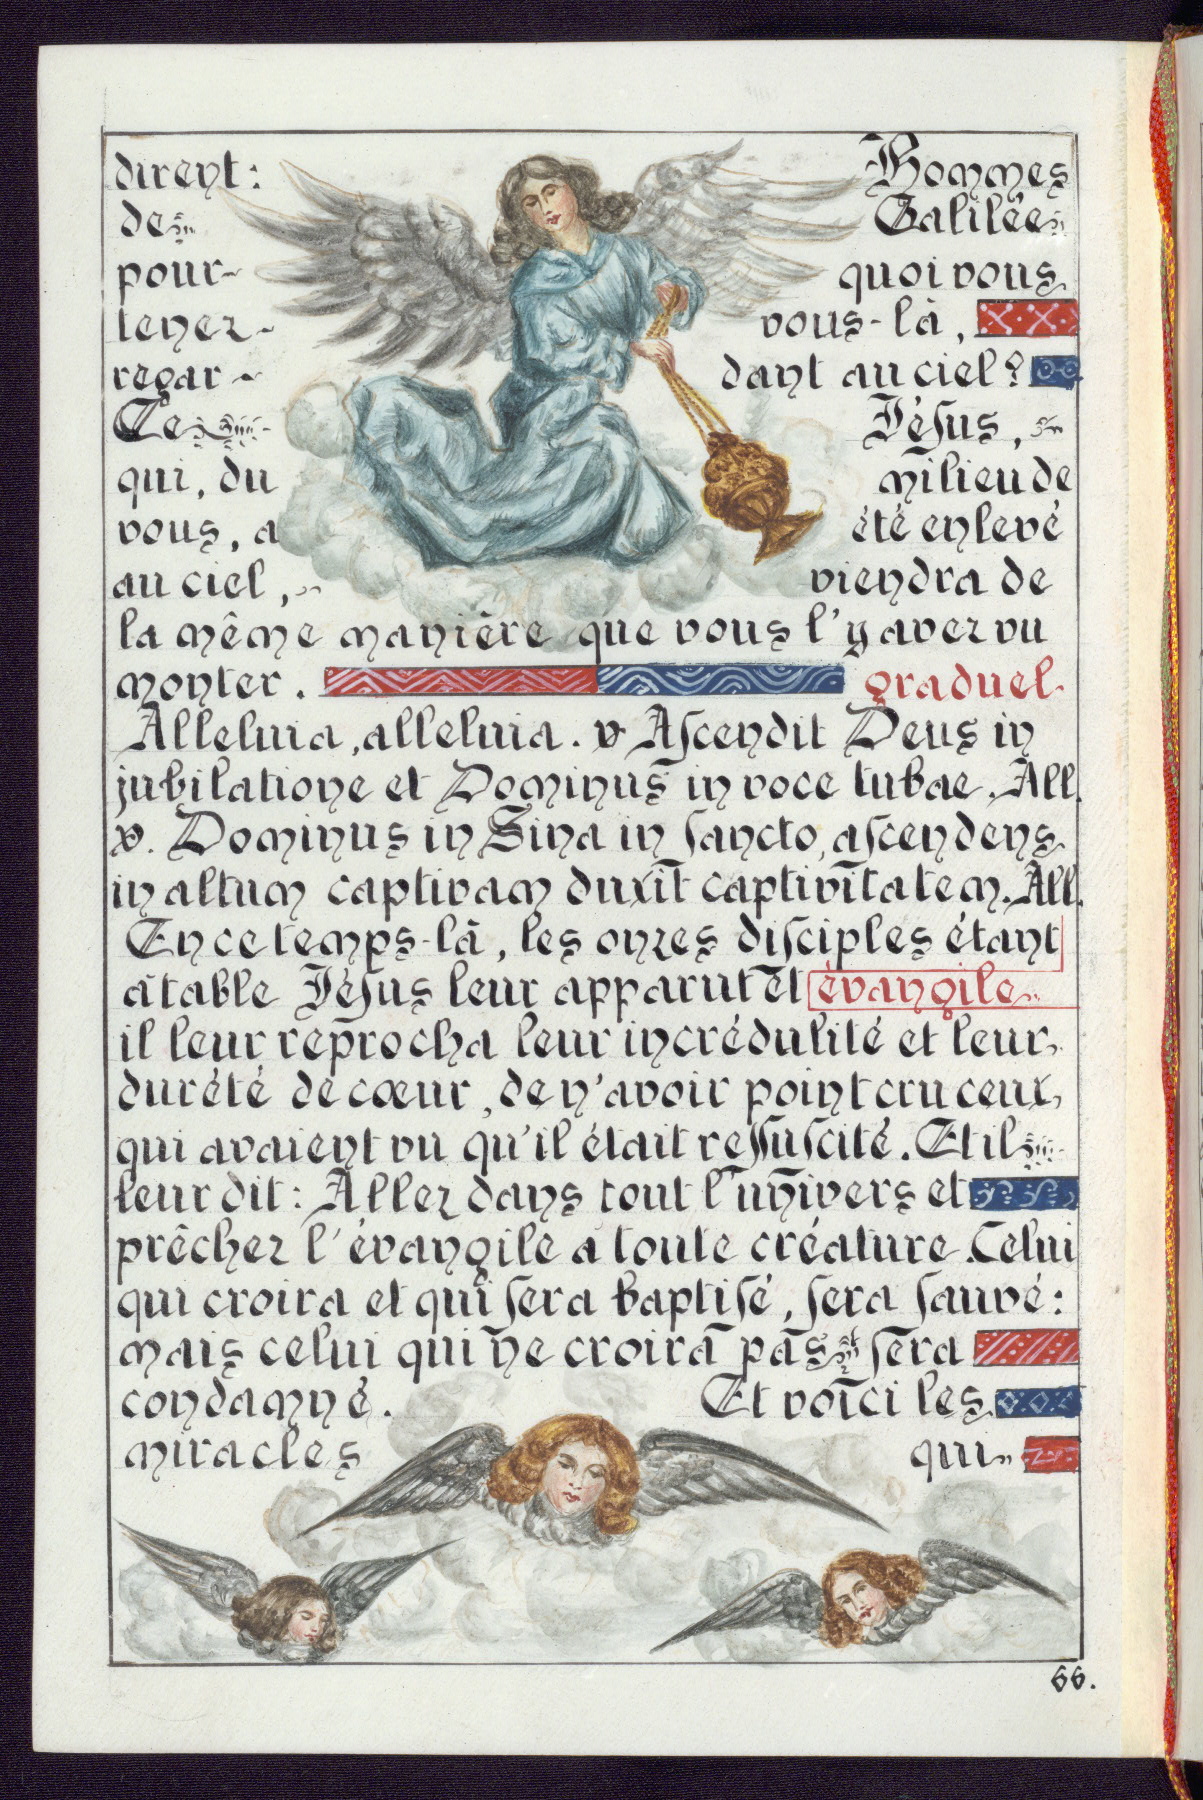 dirent: Hommes
de Galilée
pour- quoi vous
tenez- vous-là,
regar- dant au ciel?
Ce Jésus,
qui, du milieu de
vous, a été enlevé
au ciel, viendra de
la même manière que vous l'y avez vu
monter. graduel
Alleluia, alleluia. ℣ Ascendit Deus in
jubilatione et Dominus in voce tubae. All.
℣. Dominus in Sina in sancto, ascendens
in altum captivam duxit captivitatem. All.
En ce temps-là, les onzes disciples étant
à table Jésus leur apparut et évangile
il leur reprocha leur incrédulité et leur
durété de cœur, de n'avoir point cru ceux,
qui avaient vu qu'il était ressuscité. Et il
leur dit: Allez dans tout l'univers et
prêchez l'évangile à toute créature. Celui
qui croira et qui sera baptisé, sera sauvé:
mais celui qui ne croira pas sera
condamné. Et voici les
miracles qui
66.